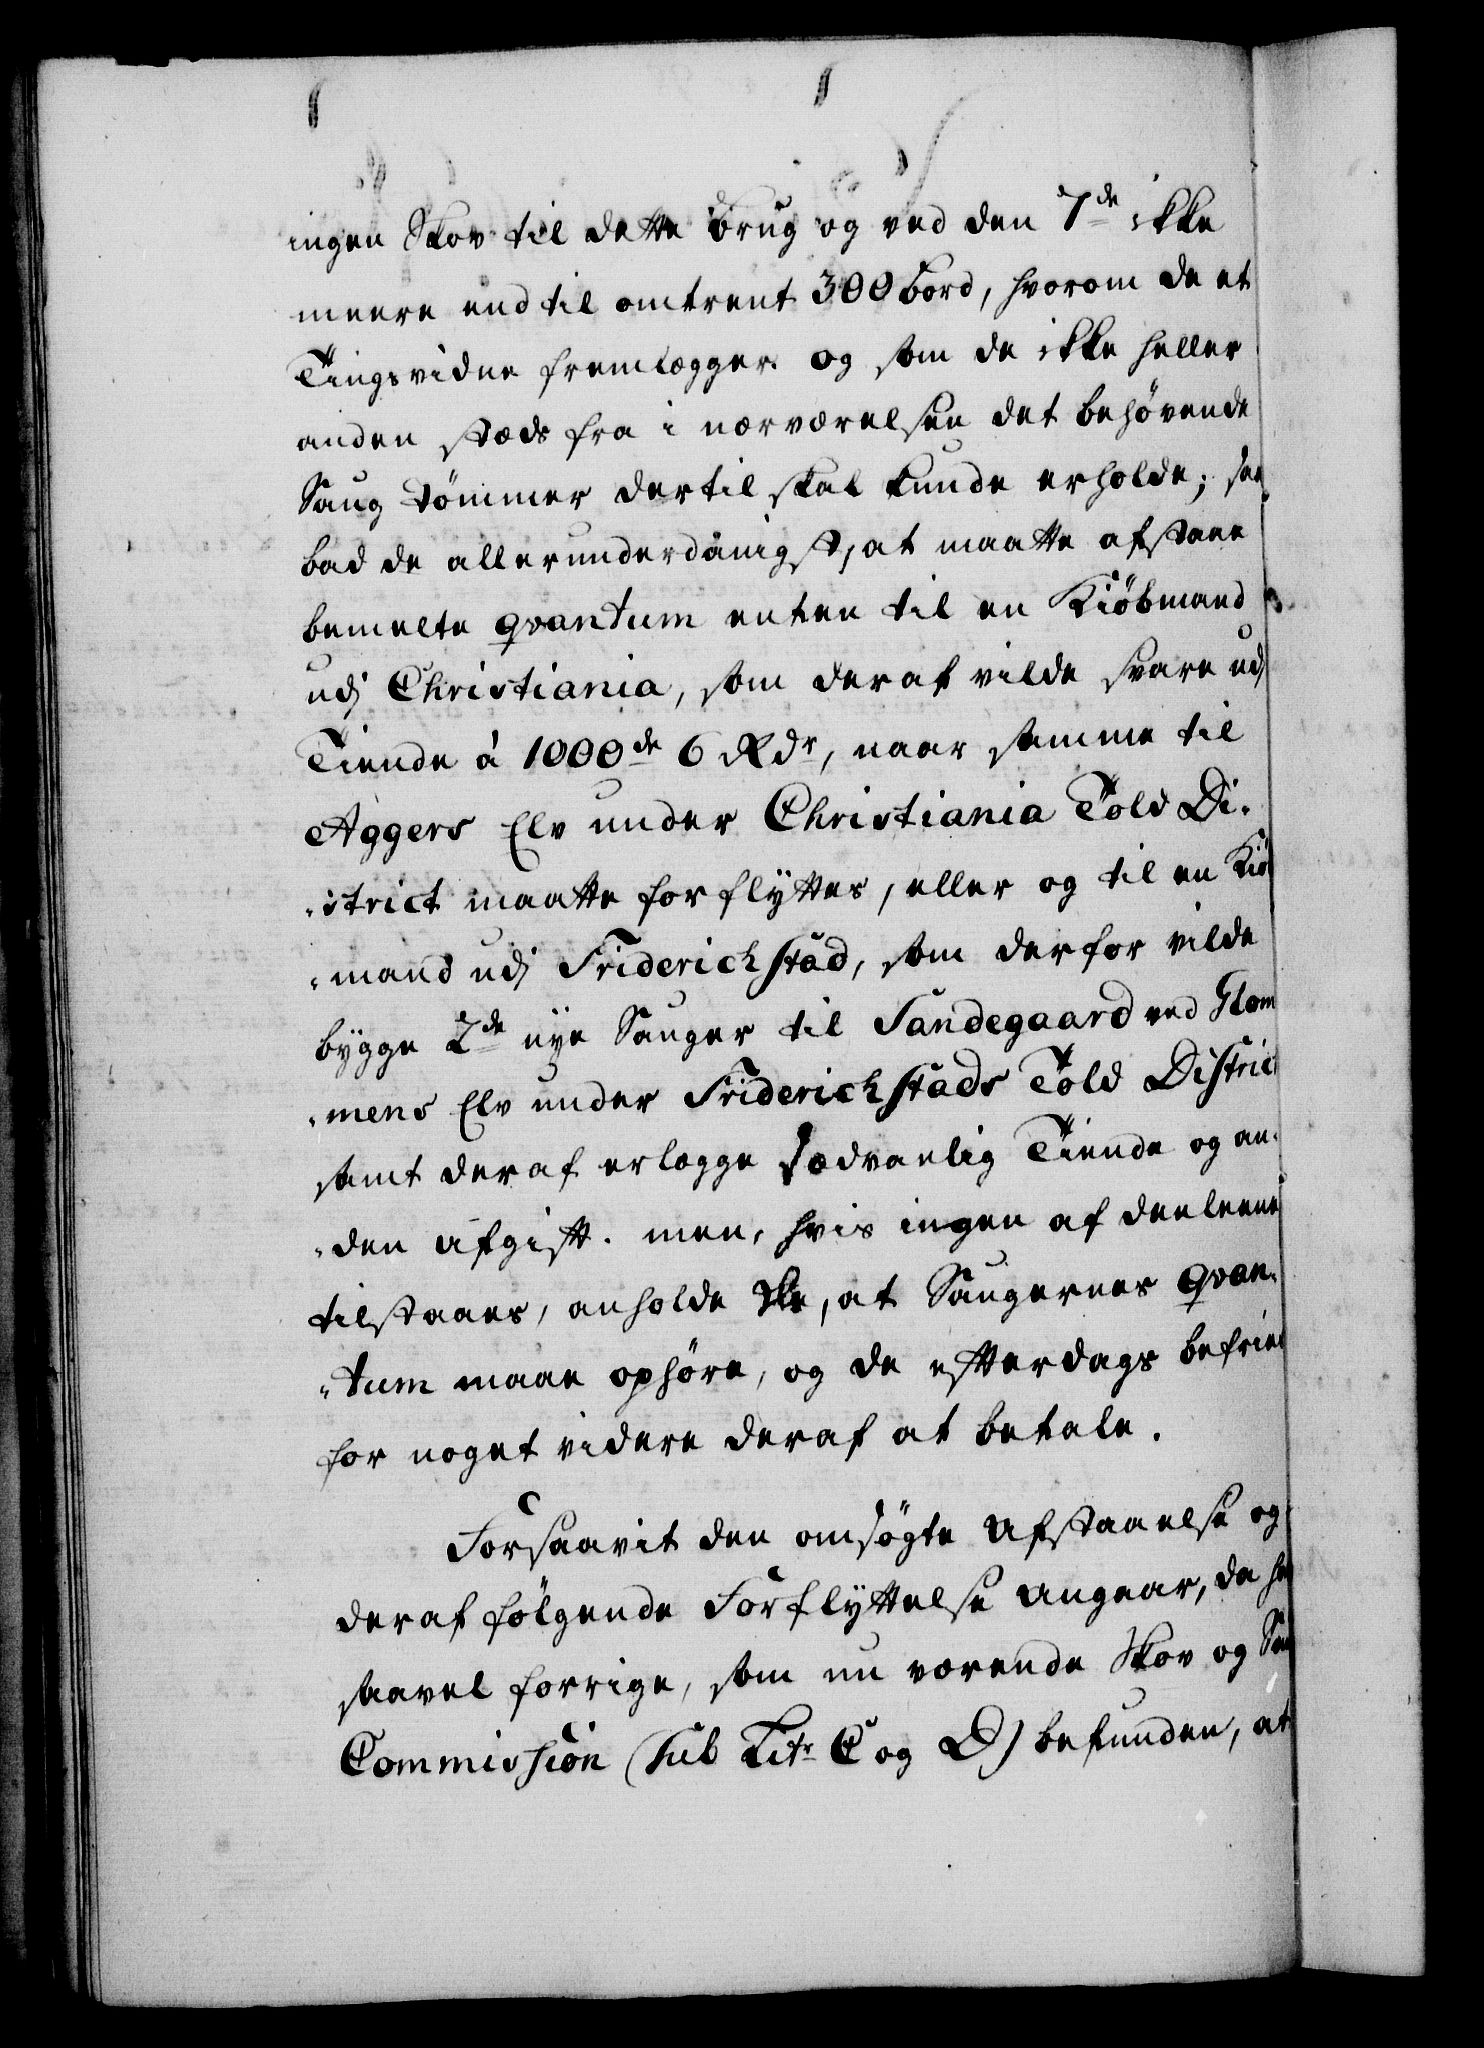 ingen Skov til dette Brug og ved den 7de ikke
meere end til omtrent 300 bord, hvorom de et
Tingsvidne fremlægger. og som de ikke heller
anden stæds fra i nærværelsen det behøvende
Saug Tömmer dertil skal kunde erholde; saa
bad de allerunderdanigst, at maatte afstaae
bemelte qvantum enten til en Kiöbmand
udj Christiania, som deraf vilde svare udj
Tiende á 1000de 6 Rdr, naar samme til
Aggers Elv under Christiania Told Di-
-strict maatte forflyttes, eller og til en Kiö
-mand udj Friderichstad, som derfor vilde
bygge 2de nye Sauger til Sandegaard ved Glom
-mens Elv under Friderichstads Told District
samt deraf erlægge sædvanlig Tiende og an-
-den Afgift. men, hvis ingen af deeleene
tilstaaes, anholde de, at Saugernes qvan-
-tum maae ophöre, og de efterdags befries
for noget videre deraf at betale.
Forsaavit den omsögte Afstaaelse og
deraf fölgende Forflyttelse angaar, da ha
saavel forrige, som nu værende Skov og Sau
Commission (Sub Litr C og D) befunden, at